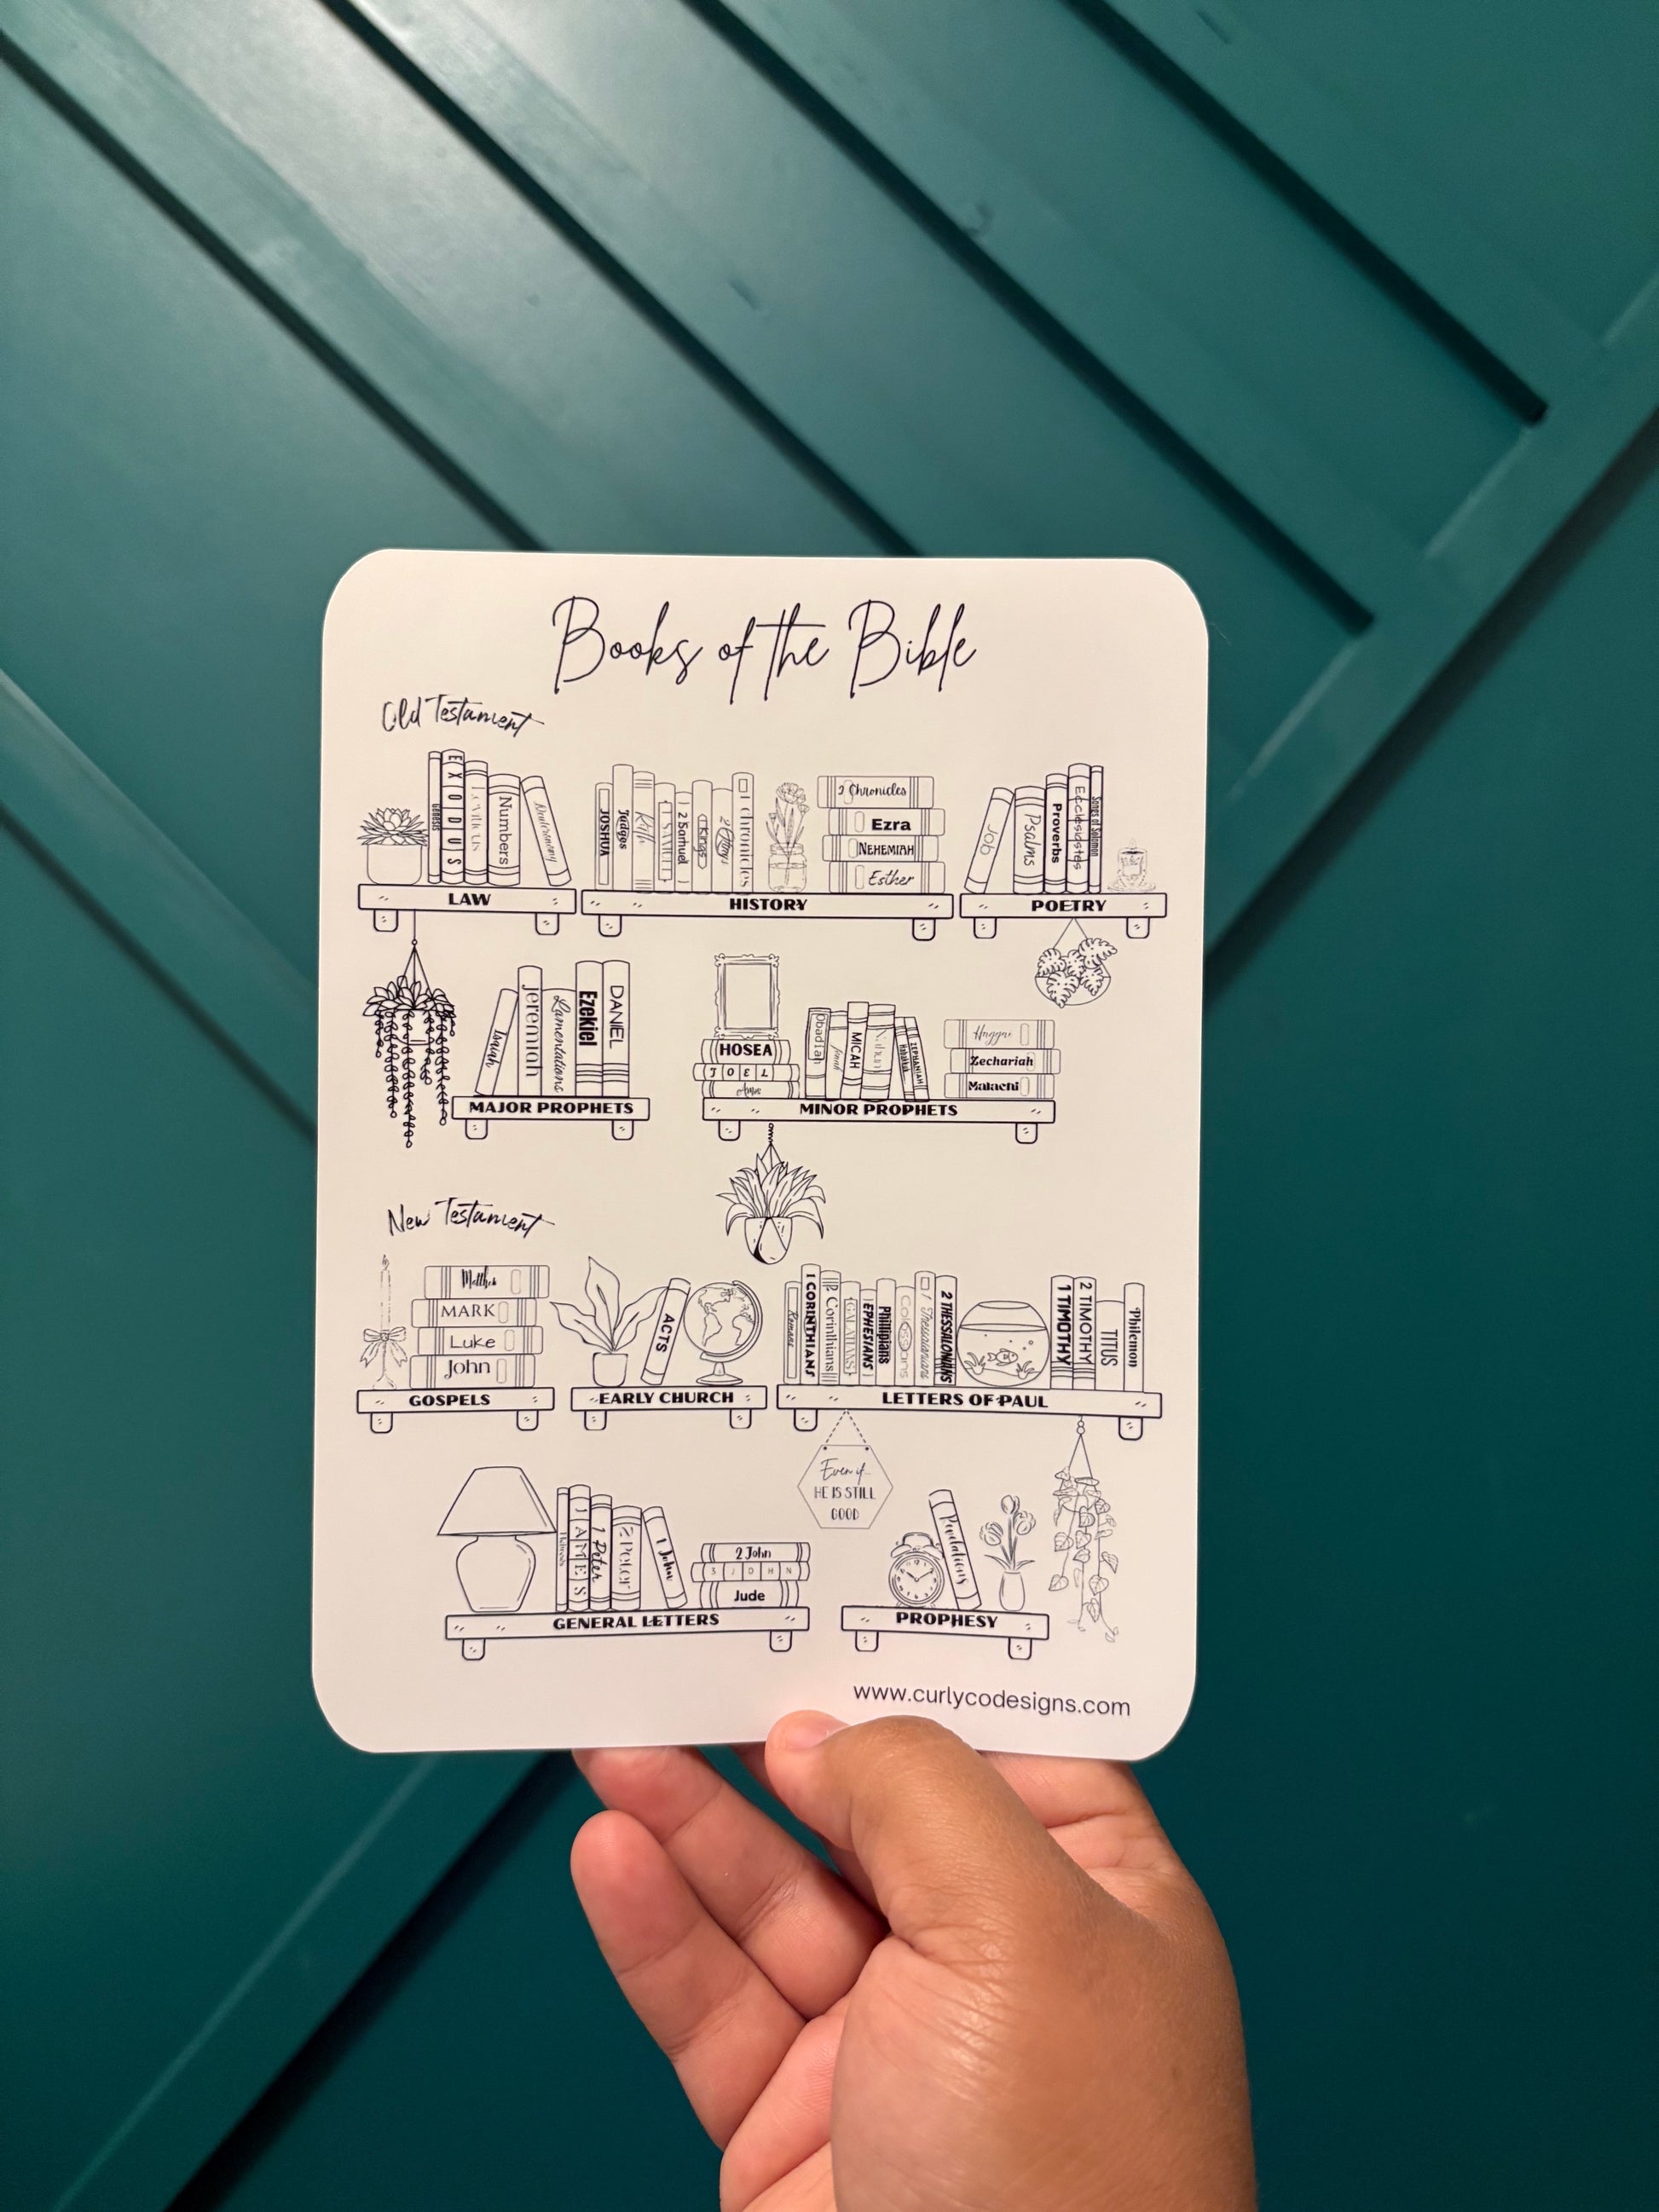 Books of the Bible
Old Testament
Genesis
EXODUS
Leviticus
Numbers
Deuteronomy
LAW
JOSHUA
Judges
Ruth
1 SAMUEL
2 Samuel
1 Kings
2 Kings
1 chronicles
2 Chronicles
Ezra
NEHEMIAH
Esther
HISTORY
Job
Psalms
Proverbs
Ecclesiastes
Songs of Solomon
POETRY
Isaiah
Jeremiah
Lamentations
Ezekiel
DANIEL
MAJOR PROPHETS
HOSEA
JOEL
Amos
Obadiah
Jonah
MICAH
Nahum
Habakkuk
ZEPHANIAH
Haggai
Zechariah
Malachi
MINOR PROPHETS
New Testament
Matthew
MARK
Luke
John
GOSPELS
ACTS
EARLY CHURCH
Romans
1 CORINTHIANS
2 Corinthians
GALATIANS
EPHESIANS
Phillipians
Colossians
1 Thessalonians
2 THESSALONIANS
1 TIMOTHY
2 TIMOTHY
TITUS
Philemon
LETTERS OF PAUL
Even if...
HE IS STILL
GOOD
JAMES
1 Peter
2 Peter
1 John
2 John
3 JOHN
Jude
GENERAL LETTERS
Revelations
PROPHESY
www.curlycodesigns.com